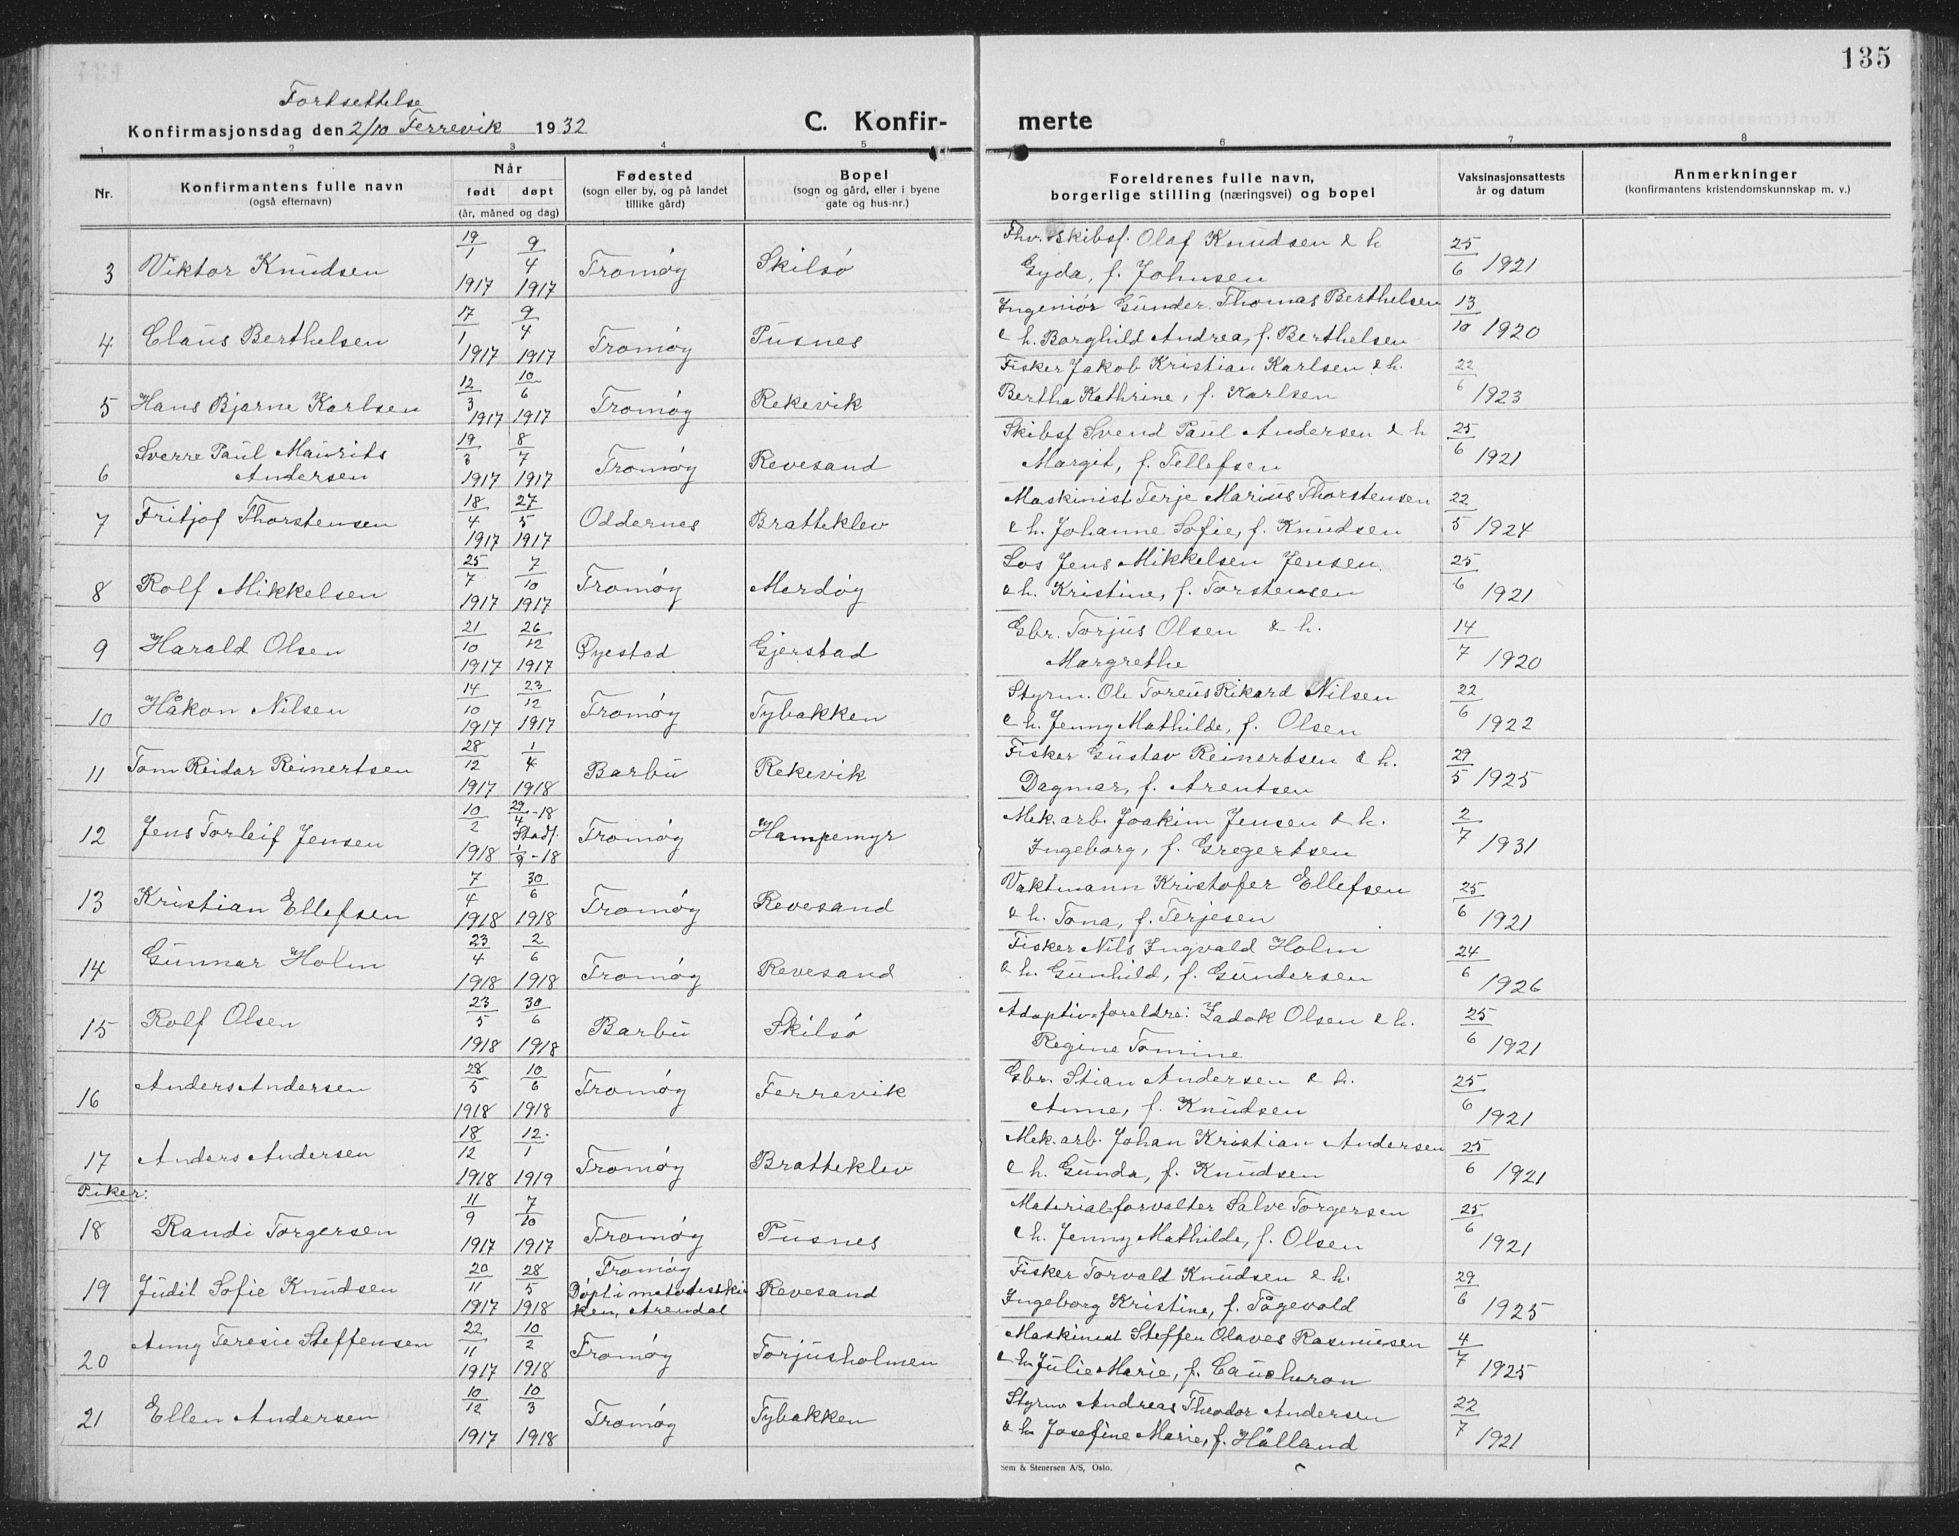 135
Fortsettelse
Konfirmasjonsdag den 2/10 Færrevik 1932
C. Konfir- merte
1 2 3 4 5 6 7 8
Nr.
Konfirmantens fulle navn
(også efternavn)
Når
født døpt
(år, måned og dag)
Fødested
(sogn eller by, og på landet
tillike gård)
Bopel
(sogn og gård, eller i byene
gate og hus-nr.)
Foreldrenes fulle navn,
borgerlige stilling (næringsvei) og bopel
Vaksinasjonsattests
år og datum
Anmerkninger
(konfirmantens kristendomskunnskap m. v.)
3 Viktor Knudsen 19/1 1917 9/4 1917 Tromøy Skilsø Fhv. skibsf. Olaf Knudsen & h. 25/6 1921
Gyda, f. Johnsen
4 Claus Berthelsen 17/1 1917 9/4 1917 Tromøy Pusnes Ingeniør Gunder Thomas Berthelsen 13/10 1920
& h. Borghild Andrea, f. Berthelsen
5 Hans Bjarne Karlsen 12/3 1917 10/6 1917 Tromøy Rekevik Fisker Jakob Kristian Karlsen & h. 22/6 1923
Bertha Kathrine, f. Karlsen
6 Sverre Paul Maurits 19/3 1917 8/7 1917 Tromøy Revesand Skibsf Svend Paul Andersen & h 25/6 1921
Andersen Margit, f. Tellefsen
7 Fritjof Thorstensen 18/4 1917 27/5 1917 Oddernes Bratteklev Maskinist Terje Marius Thorstensen 22/5 1924
& h. Johanne Sofie, f. Knudsen
8 Rolf Mikkelsen 25/7 1917 7/10 1917 Tromøy Merdøy Los Jens Mikkelsen Jensen 25/6 1921
& h. Kristine, f. Torstensen
9 Harald Olsen 21/10 1917 26/12 1917 Øyestad Gjerstad Gbr. Torjus Olsen & h. 14/7 1920
Margrethe
10 Håkon Nilsen 14/10 1917 23/12 1917 Tromøy Tybakken Styrm. Ole Toreus Rikard Nilsen 22/6 1922
& h. Jenny Mathilde, f. Olsen
11 Tom Reidar Reinertsen 28/12 1917 1/4 1918 Barbu Rekevik Fisker Gustav Reinertsen & h. 29/5 1925
Dagmar, f. Arentsen
12 Jens Torleif Jensen 10/2 1918 29/4-18 Stadf. 1/9-18 Tromøy Hampemyr Mek. arb. Joakim Jensen & h. 2/7 1931
Ingeborg, f. Gregertsen
13 Kristian Ellefsen 7/4 1918 30/6 1918 Tromøy Revesand Vaktmann Kristofer Ellefsen 25/6 1921
& h. Tona, f. Terjesen
14 Gunnar Holm 23/4 1918 2/6 1918 Tromøy Revesand Fisker Nils Ingvald Holm 24/6 1926
& h. Gunhild, f. Gundersen
15 Rolf Olsen 23/5 1918 30/6 1918 Barbu Skilsø Adoptivforeldre: Zadok Olsen & h. 25/6 1921
Regine Tomine
16 Anders Andersen 28/5 1918 10/6 1918 Tromøy Færrevik Gbr. Stian Andersen & h. 25/6 1921
Anne, f. Knudsen
17 Anders Andersen 18/12 1918 12/1 1919 Tromøy Bratteklev Mek. arb. Johan Kristian Andersen 25/6 1921
& h. Gunda, f. Knudsen
Piker:
18 Randi Torgersen 11/9 1917 7/10 1917 Tromøy Pusnes Materialforvalter Salve Torgersen 25/6 1921
& h. Jenny Mathilde, f. Olsen
19 Judit Sofie Knudsen 20/11 1917 28/5 1918 Tromøy Revesand Fisker Torvald Knudsen & h. 29/6 1925
Døpt i metodistkir
ken, Arendal Ingeborg Kristine, f. Tågevold
20 Anny Teresie Steffensen 22/11 1917 10/2 1918 Tromøy Torjusholmen Maskinist Steffen Olaves Rasmussen 4/7 1925
& h. Julie Marie, f. Caucheron
21 Ellen Andersen 10/12 1917 10/3 1918 Tromøy Tybakken Styrm. Andreas Theodor Andersen 22/7 1921
& h. Josefine Marie, f. Hålland
Sem & Stenersen A/S, Oslo.